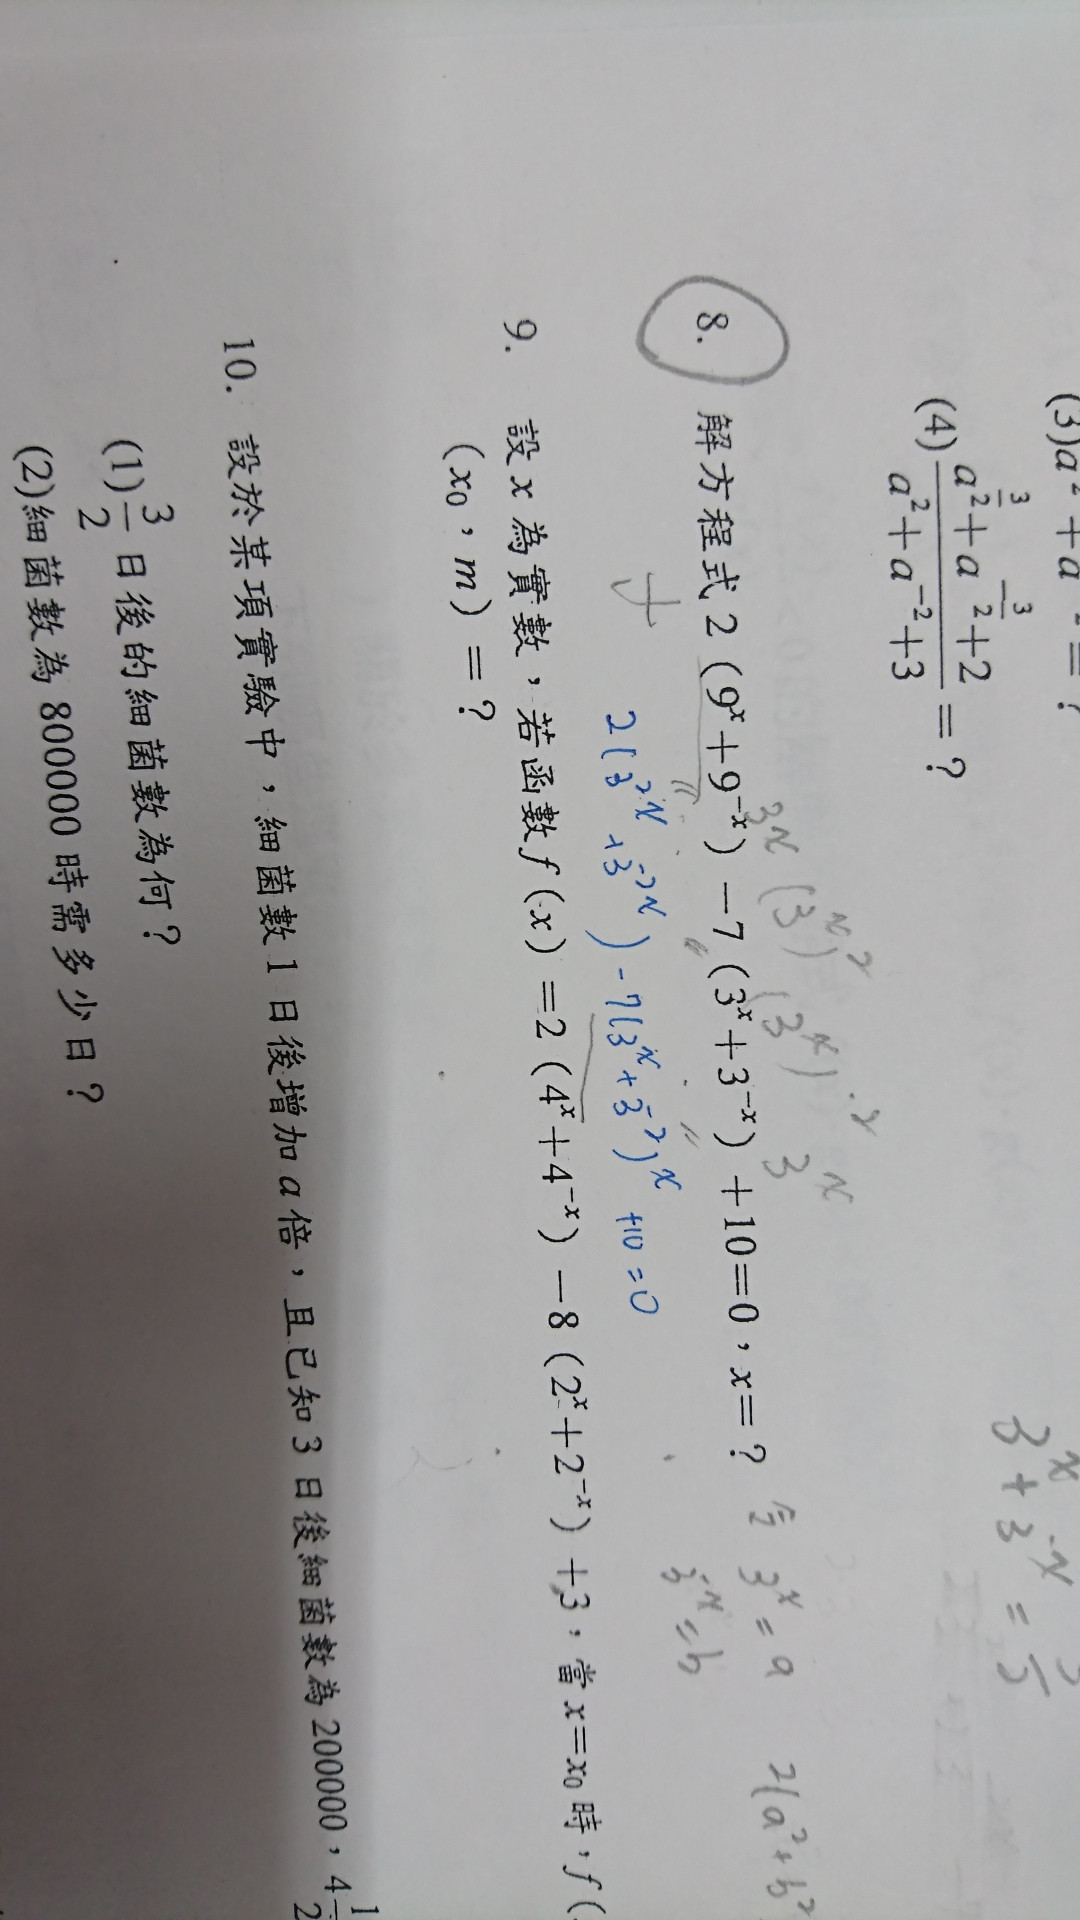 (3)a² + a⁻² = ?
(4) (a^(3/2) + a^(-3/2) + 2) / (a² + a⁻² + 3) = ?
3ˣ + 3⁻ˣ =
3x (3ˣ)² (3ˣ)·² 3ˣ
8. 解方程式 2 (9ˣ+9⁻ˣ) −7 (3ˣ+3⁻ˣ) +10=0,x=?
令 3ˣ = a 2(a²+b²
3⁻ˣ = b
2(3²ˣ +3⁻²ˣ) -7(3ˣ+3⁻²)ˣ +10=0
9. 設 x 為實數,若函數 f (x) =2 (4ˣ+4⁻ˣ) −8 (2ˣ+2⁻ˣ) +3,當 x=x₀ 時,f (
(x₀,m) =?
10. 設於某項實驗中,細菌數 1 日後增加 a 倍,且已知 3 日後細菌數為 200000,4 1/2
(1) 3/2 日後的細菌數為何?
(2)細菌數為 800000 時需多少日?